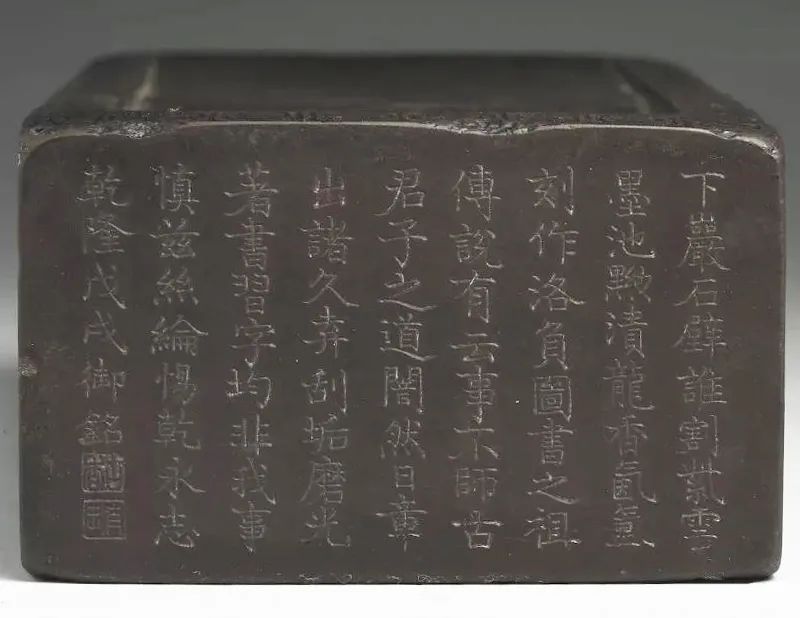 下巖石壁誰割紫雲
墨池黝漬龍香氤氳
刻作洛負圖書之祖
傳說有云事不師古
君子之道闇然日章
出諸久弆刮垢磨光
著書習字均非我事
慎茲絲綸惕乾永志
乾隆戊戌御銘